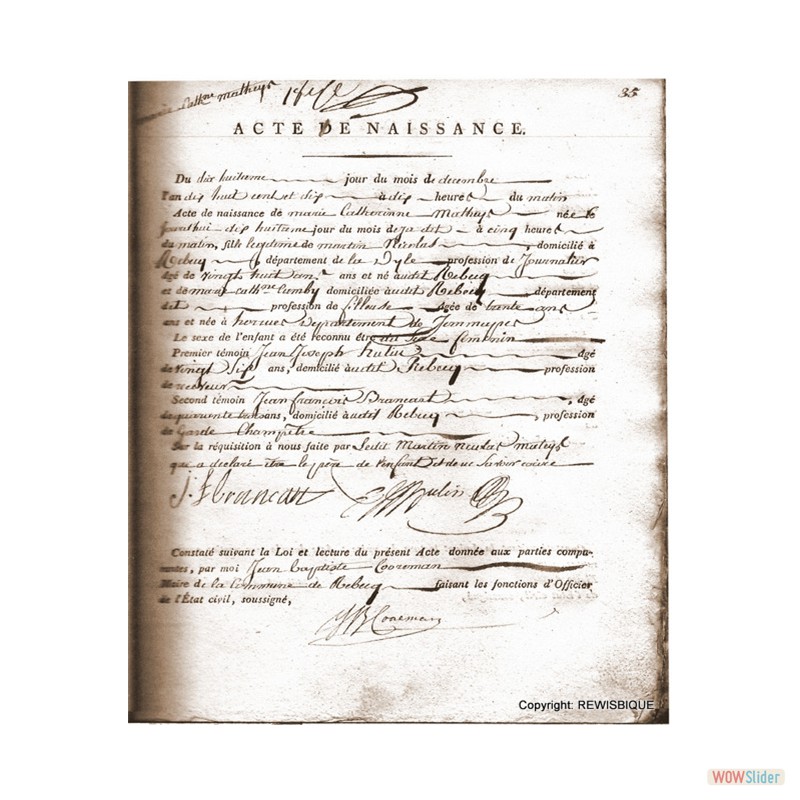 Cathne Mathys
35
ACTE DE NAISSANCE.
Du dix huiteme jour du mois de decembre
l'an dix huit cent et dix à dix heures du matin
Acte de naissance de marie Catherinne Mathys née le
jourd'hui dix huiteme jour du mois de à cinq heures
du matin, fille legetime de martin Nicolas, domicilié à
Rebecq, département de la Dyle profession de Journalier
âgé de vingt huit ans ans et né audit Rebecq
et de marie cathne domiciliée audit Rebecq département
dit profession de fileuse âgée de trante ans
ans et née à hernnes Departement de Jemmapes
Le sexe de l'enfant a été reconnu être du sexe feminin
Premier témoin Jean Joseph hulin âgé
de vingt six ans, domicilié audit Rebecq profession
de receveur
Second témoin Jean françois Brancart, âgé
de quarante ans, domicilié audit Rebecq, profession
de Garde Champêtre
Sur la réquisition à nous faite par ledit Martin nicolas mathys
que a declaré être le père de l'enfant et
J. F Brancart
Hulin
Constaté suivant la Loi et lecture du présent Acte donnée aux parties compa-
rantes, par moi Jean baptiste Cooreman
Maire de la Commune de Rebecq faisant les fonctions d'Officier
de l'État civil, soussigné,
JB Cooreman
Copyright: REWISBIQUE
WOWSlider